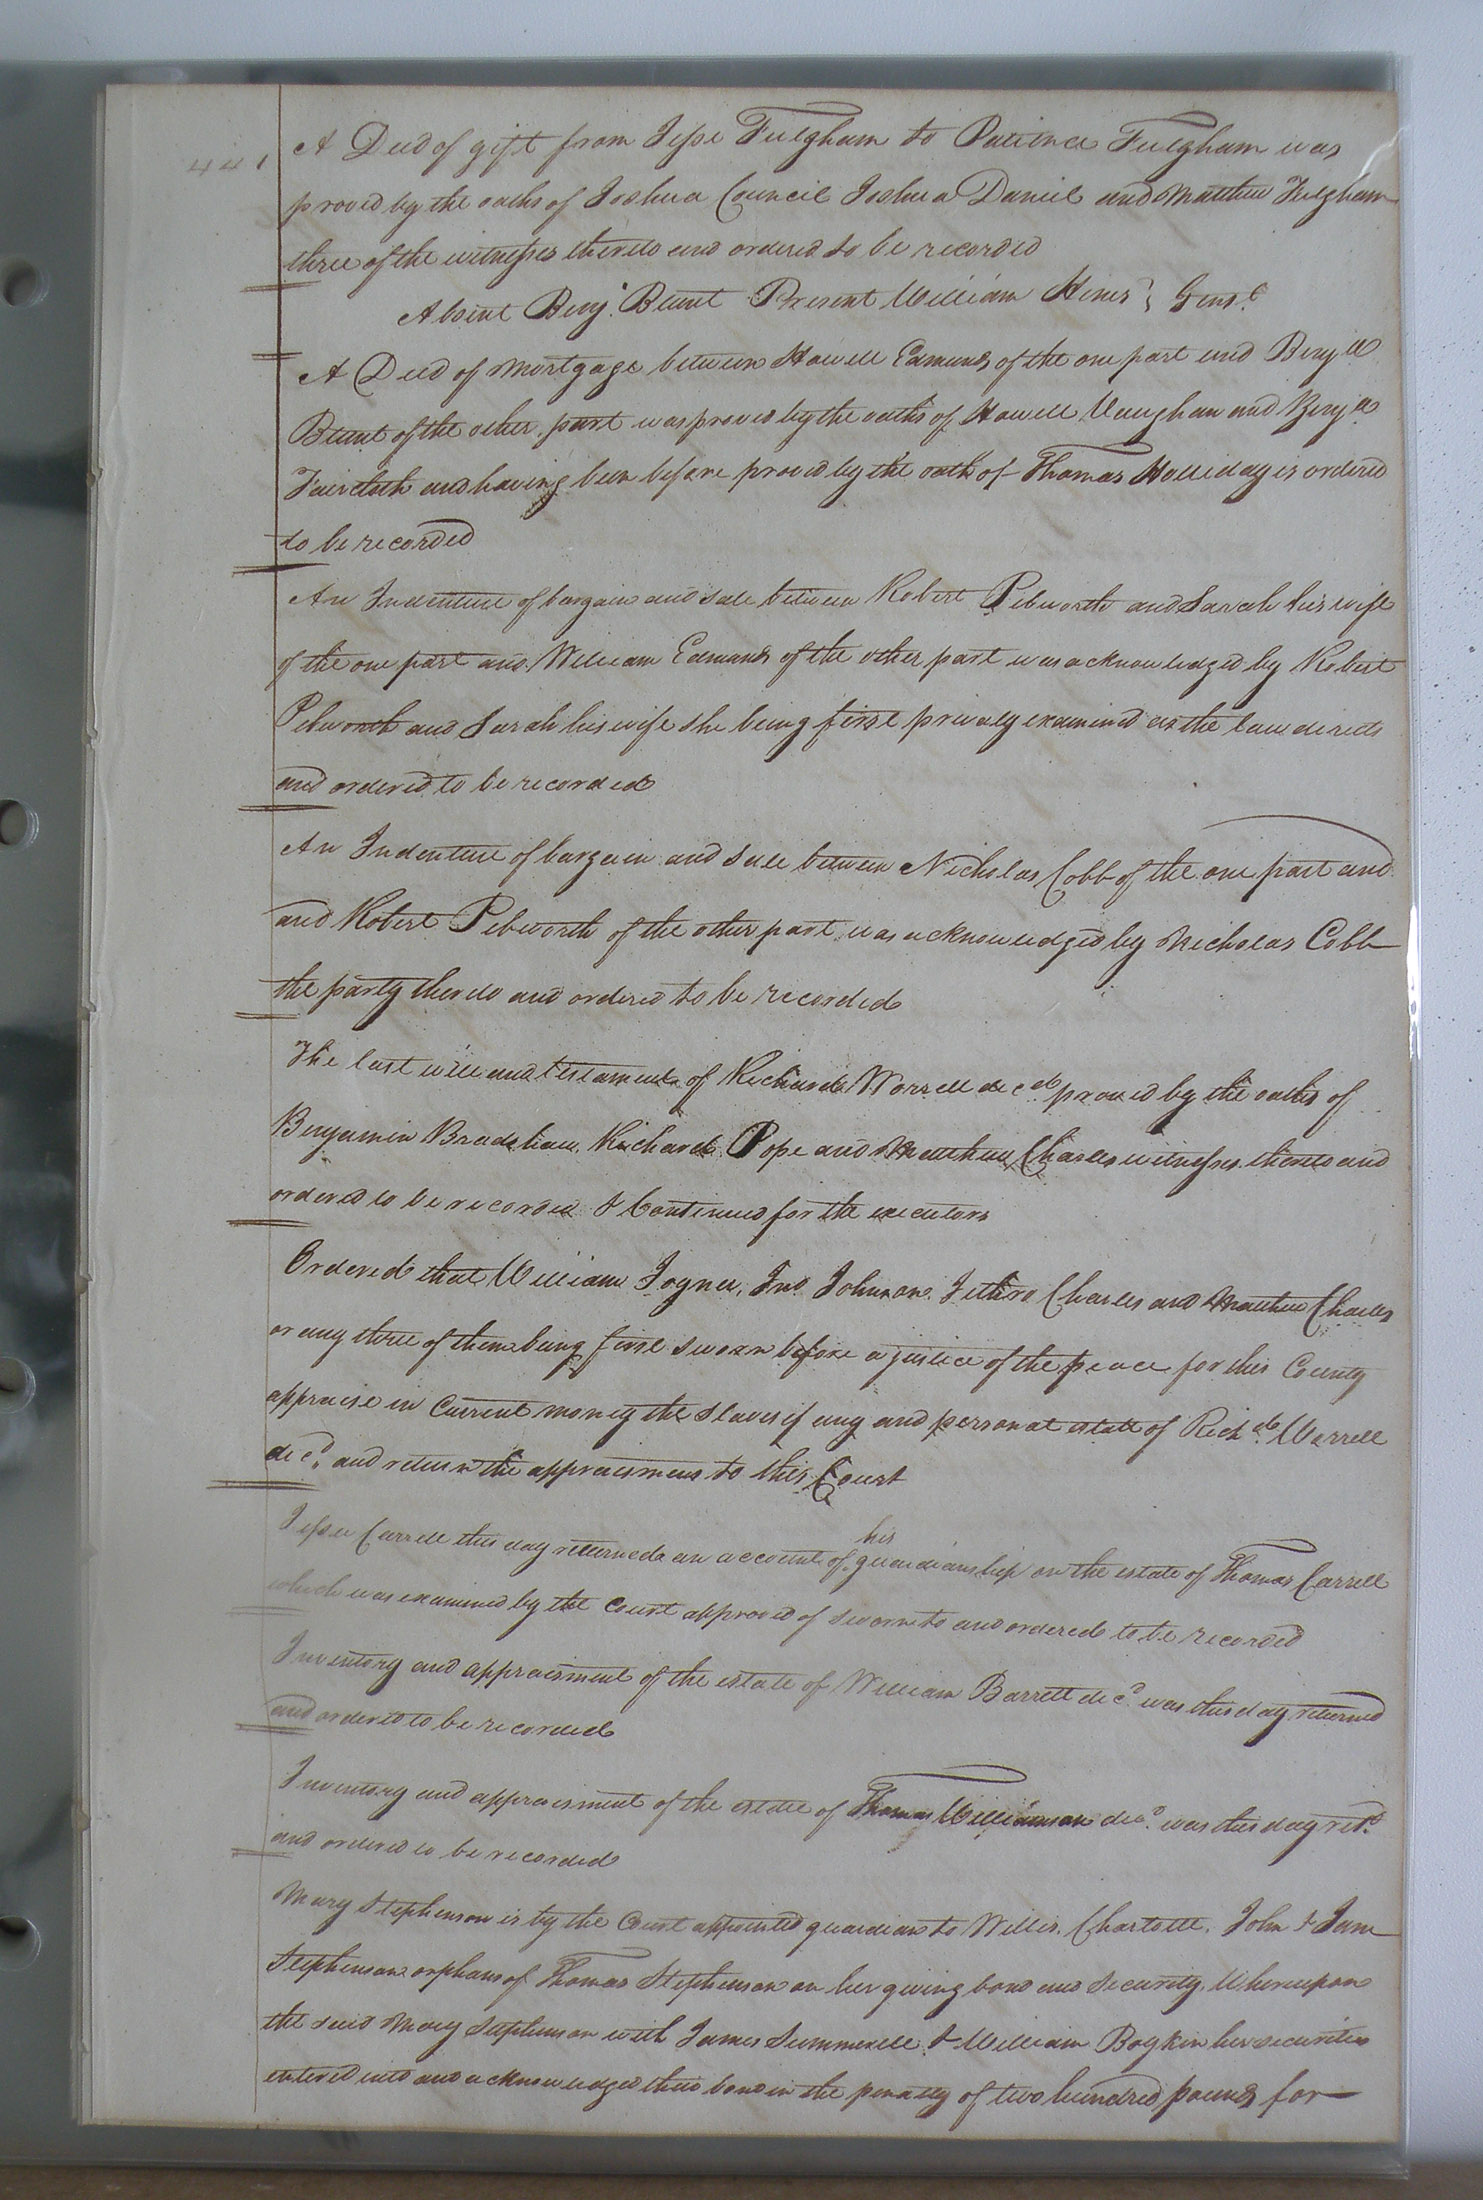 441
A Deed of gift from Jesse Fulgham to Patience Fulgham was
proved by the oaths of Joshua Council Joshua Daniel and Matthew Fulgham
three of the witnesses thereto and ordered to be recorded
Absent Benj.ª Blunt Present William Hines } Gent.
A Deed of Mortgage between Howell Edmunds of the one part and Benjª
Blunt of the other part was proved by the oaths of Howell Vaughan and Benjª
Faircloth and having been before proved by the oath of Thomas Holliday is ordered
to be recorded
An Indenture of bargain and sale between Robert Pebworth and Sarah his wife
of the one part and William Edmunds of the other part was acknowledged by Robert
Pebworth and Sarah his wife she being first privaly examined as the law directs
and ordered to be recorded
An Indenture of bargain and sale between Nicholas Cobb of the one part and
and Robert Pebworth of the other part was acknowledged by Nicholas Cobb
the party thereto and ordered to be recorded
The last will and testament of Richard Worrell decd proved by the oaths of
Benjamin Bradshaw, Richard Pope and Matthew Charles witnesses thereto and
ordered to be recorded & Continued for the executors
Ordered that William Joyner, Jno Johnson, Jethro Charles and Matthew Charles
or any three of them being first sworn before a justice of the peace for this County
appraise in Current money the slaves if any and personal estate of Richd. Worrell
decd. and return the appraisment to this Court
Jesse Carrell this day returned an account of his guardianship on the estate of Thomas Carrell
which was examined by the Court approved of sworn to and ordered to be recorded
Inventory and appraisment of the estate of William Barrett decd. was this day returned
and ordered to be recorded
Inventory and appraisment of the estate of Thomas Williamson decd. was this day retd.
and ordered to be recorded
Mary Stephenson is by the Court appointed guardian to Willis, Charlotte, John & Jane
Stephenson orphans of Thomas Stephenson on her giving bond and Security, Whereupon
the said Mary Stephenson with James Summerell & William Boykin her securities
entered into and acknowledged their bond in the penalty of two hundred pounds for